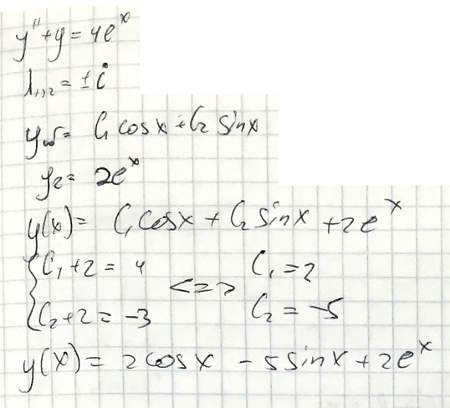 y'' + y = 4e^x
λ₁,₂ = ±i
y₀ = C₁ cosx + C₂ sinx
y₂ = 2e^x
y(x) = C₁cosx + C₂sinx + 2e^x
{ C₁ + 2 = 4 <=> C₁ = 2
{ C₂ + 2 = -3 C₂ = -5
y(x) = 2cosx - 5sinx + 2e^x